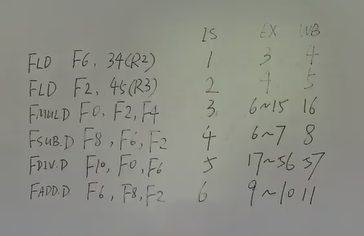 IS EX WB
FLD F6, 34(R2) 1 3 4
FLD F2, 45(R3) 2 4 5
FMUL.D F0, F2, F4 3 6~15 16
FSUB.D F8, F6, F2 4 6~7 8
FDIV.D F10, F0, F6 5 17~56 57
FADD.D F6, F8, F2 6 9~10 11